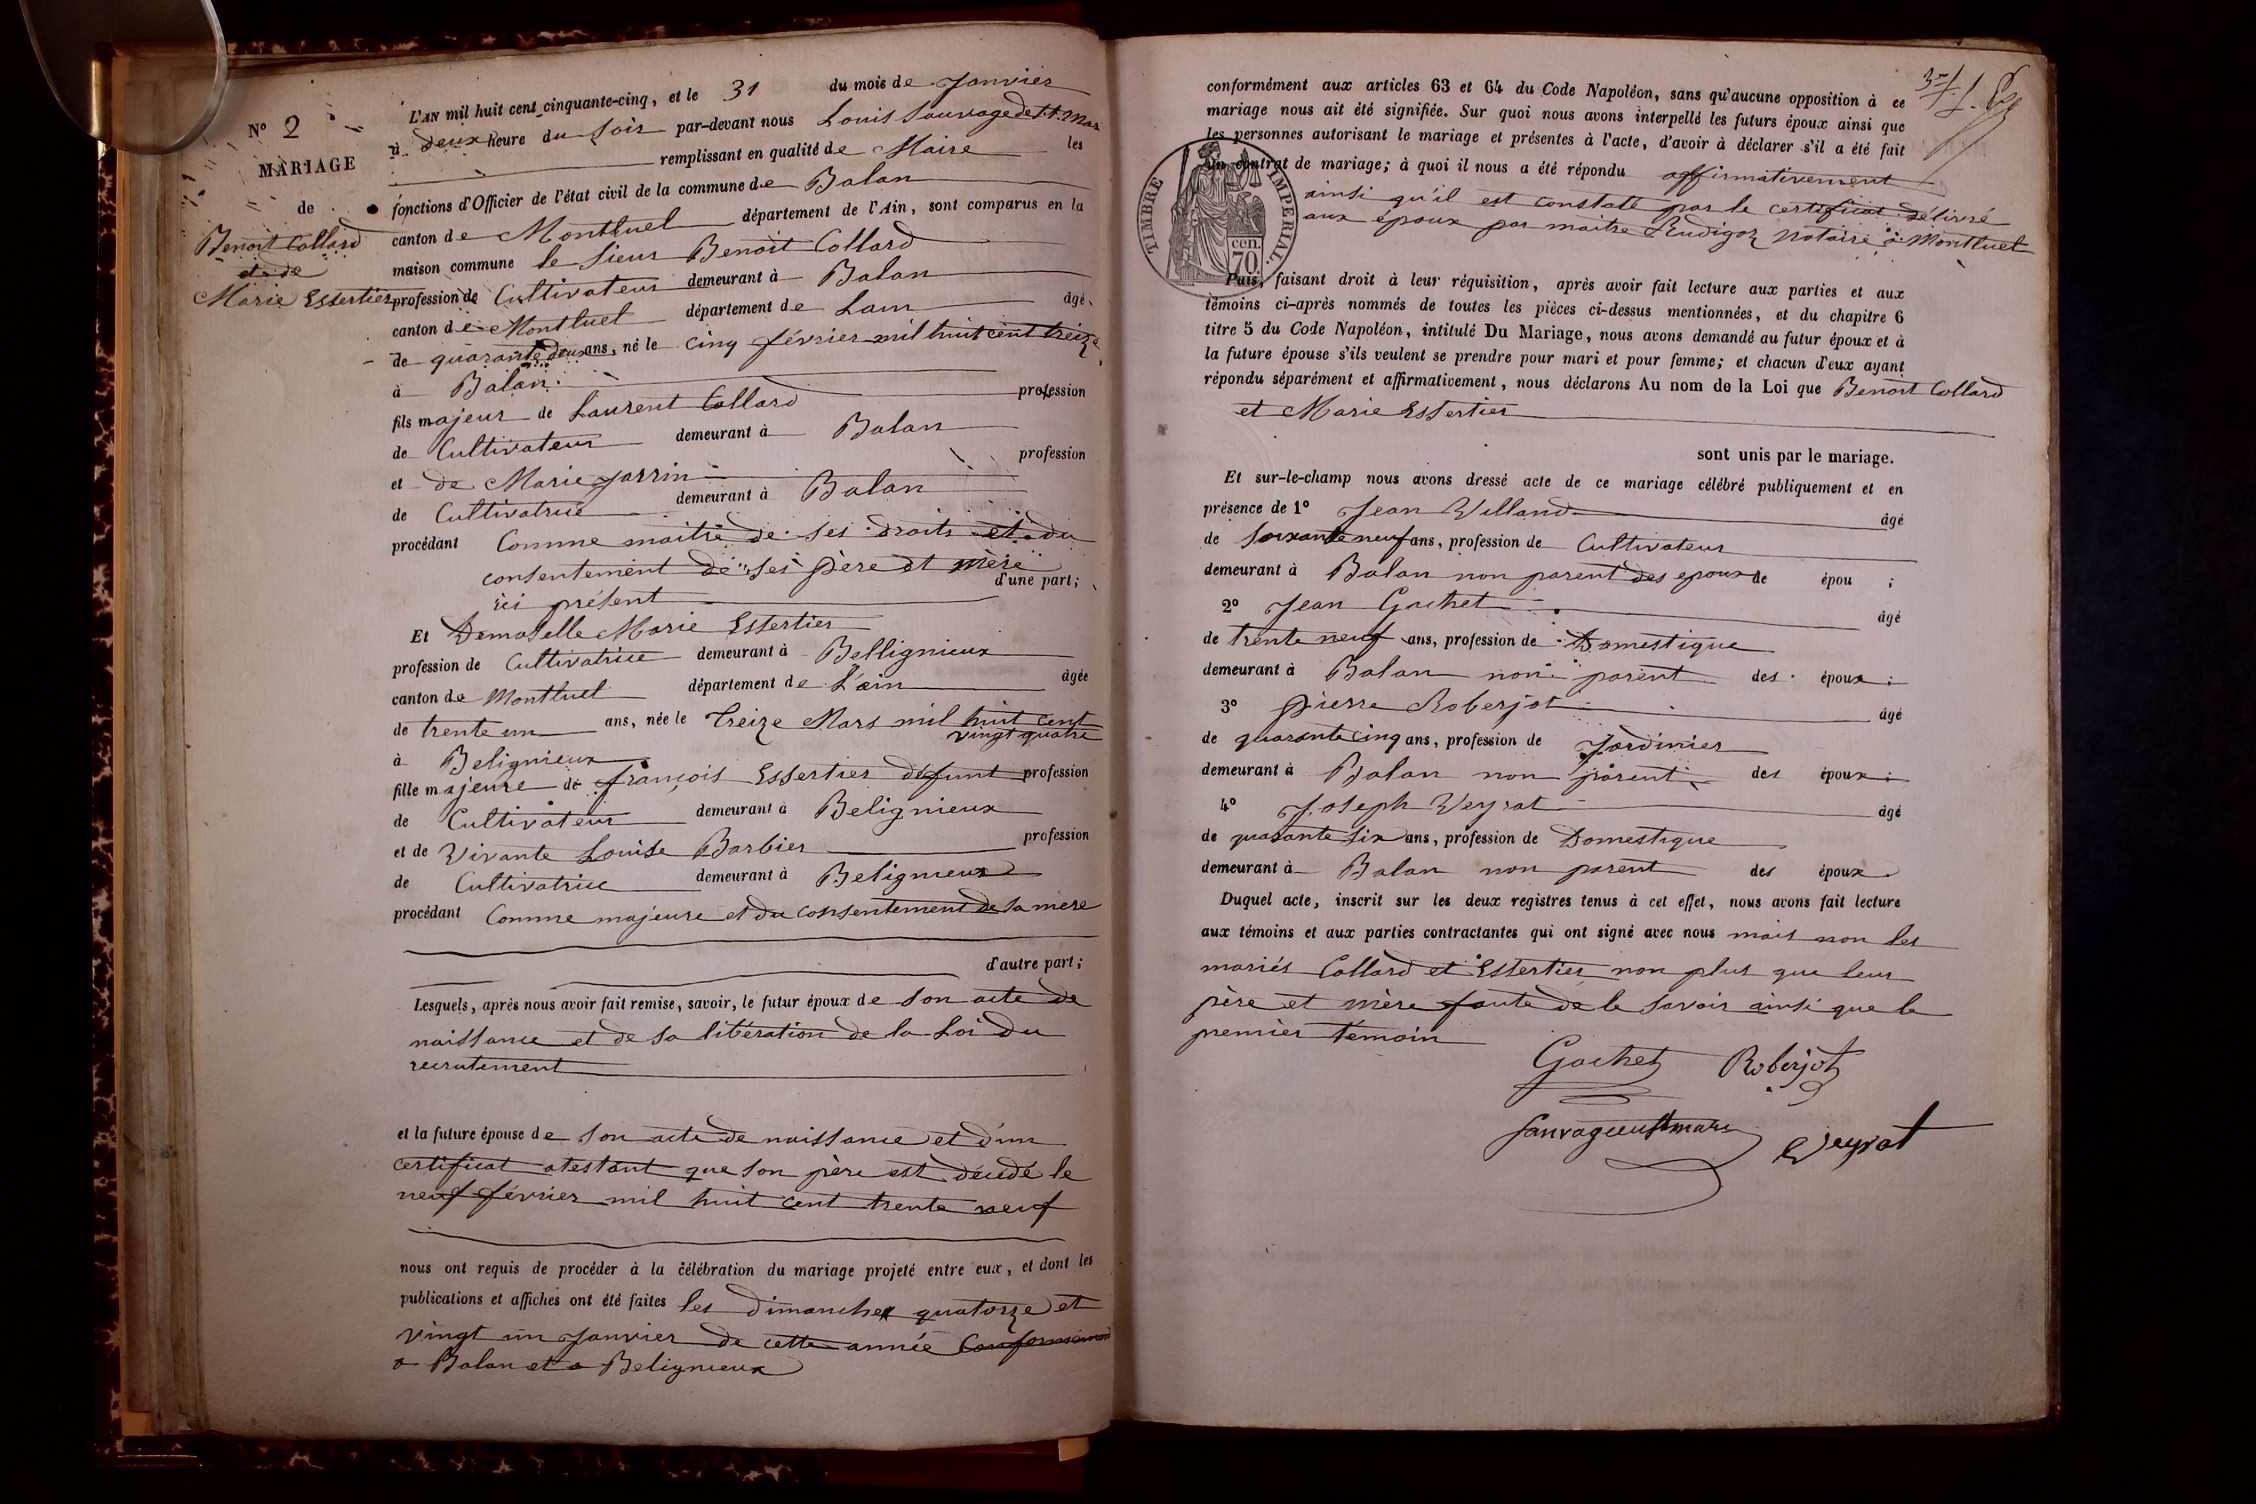 N° 2
MARIAGE
de
Benoit Collard
et de
Marie Essertier
L'AN mil huit cent cinquante-cinq, et le 31 du mois de Janvier
à deux heure du Soir par-devant nous Louis Sauvage de St. Mar
remplissant en qualité de Maire les
fonctions d'Officier de l'état civil de la commune de Balan
canton de Montluel département de l'Ain, sont comparus en la
maison commune le Sieur Benoit Collard
profession de Cultivateur demeurant à Balan
canton de Montluel département de Lain âgé
de quarante deux ans, né le cinq février mil huit cent treize
à Balan
fils majeur de Laurent Collard profession
de Cultivateur demeurant à Balan
et de Marie Jarrin profession
de Cultivatrice demeurant à Balan
procédant Comme maitre de ses droits et du
consentement de ses père et mère
ici présent d'une part;
Et Demoselle Marie Essertier
profession de Cultivatrice demeurant à Bellignieux
canton de Montluel département de L'ain âgée
de trente un ans, née le treize Mars mil huit cent
vingt quatre
à Belignieux
fille majeure de françois Essertier défunt profession
de Cultivateur demeurant à Belignieux
et de Vivante Louise Barbier profession
de Cultivatrice demeurant à Belignieux
procédant Comme majeure et du consentement de sa mère
d'autre part;
Lesquels, après nous avoir fait remise, savoir, le futur époux de son acte de
naissance et de sa libération de la Loi du
recrutement
et la future épouse de son acte de naissance et d'un
certificat atestant que son père est décédé le
neuf février mil huit cent trente neuf
nous ont requis de procéder à la célébration du mariage projeté entre eux, et dont les
publications et affiches ont été faites les dimanches quatorze et
vingt un Janvier de cette année Conformément
a Balan et a Belignieux
conformément aux articles 63 et 64 du Code Napoléon, sans qu'aucune opposition à ce
mariage nous ait été signifiée. Sur quoi nous avons interpellé les futurs époux ainsi que
les personnes autorisant le mariage et présentes à l'acte, d'avoir à déclarer s'il a été fait
un contrat de mariage; à quoi il nous a été répondu affirmativement
ainsi qu'il est constaté par le certificat délivré
aux époux par maitre Rudigoz Notaire à Montluel
TIMBRE IMPERIAL.
cen.
70.
Puis, faisant droit à leur réquisition, après avoir fait lecture aux parties et aux
témoins ci-après nommés de toutes les pièces ci-dessus mentionnées, et du chapitre 6
titre 5 du Code Napoléon, intitulé Du Mariage, nous avons demandé au futur époux et à
la future épouse s'ils veulent se prendre pour mari et pour femme; et chacun d'eux ayant
répondu séparément et affirmativement, nous déclarons Au nom de la Loi que Benoit Collard
et Marie Essertier
sont unis par le mariage.
Et sur-le-champ nous avons dressé acte de ce mariage célébré publiquement et en
présence de 1° Jean Villand âgé
de Soixante neuf ans, profession de Cultivateur
demeurant à Balan non parent des epoux de épou ;
2° Jean Gachet âgé
de trente neuf ans, profession de Domestique
demeurant à Balan non parent des époux ;
3° Pierre Roberjot âgé
de quarante cinq ans, profession de Jardinier
demeurant à Balan non parent des époux ;
4° Joseph Veyrat âgé
de quarante six ans, profession de Domestique
demeurant à Balan non parent des époux
Duquel acte, inscrit sur les deux registres tenus à cet effet, nous avons fait lecture
aux témoins et aux parties contractantes qui ont signé avec nous mais non les
mariés Collard et Essertier non plus que leur
père et mère faute de le savoir ainsi que le
premier témoin
Gachet Roberjot
Sauvage de St marc Veyrat